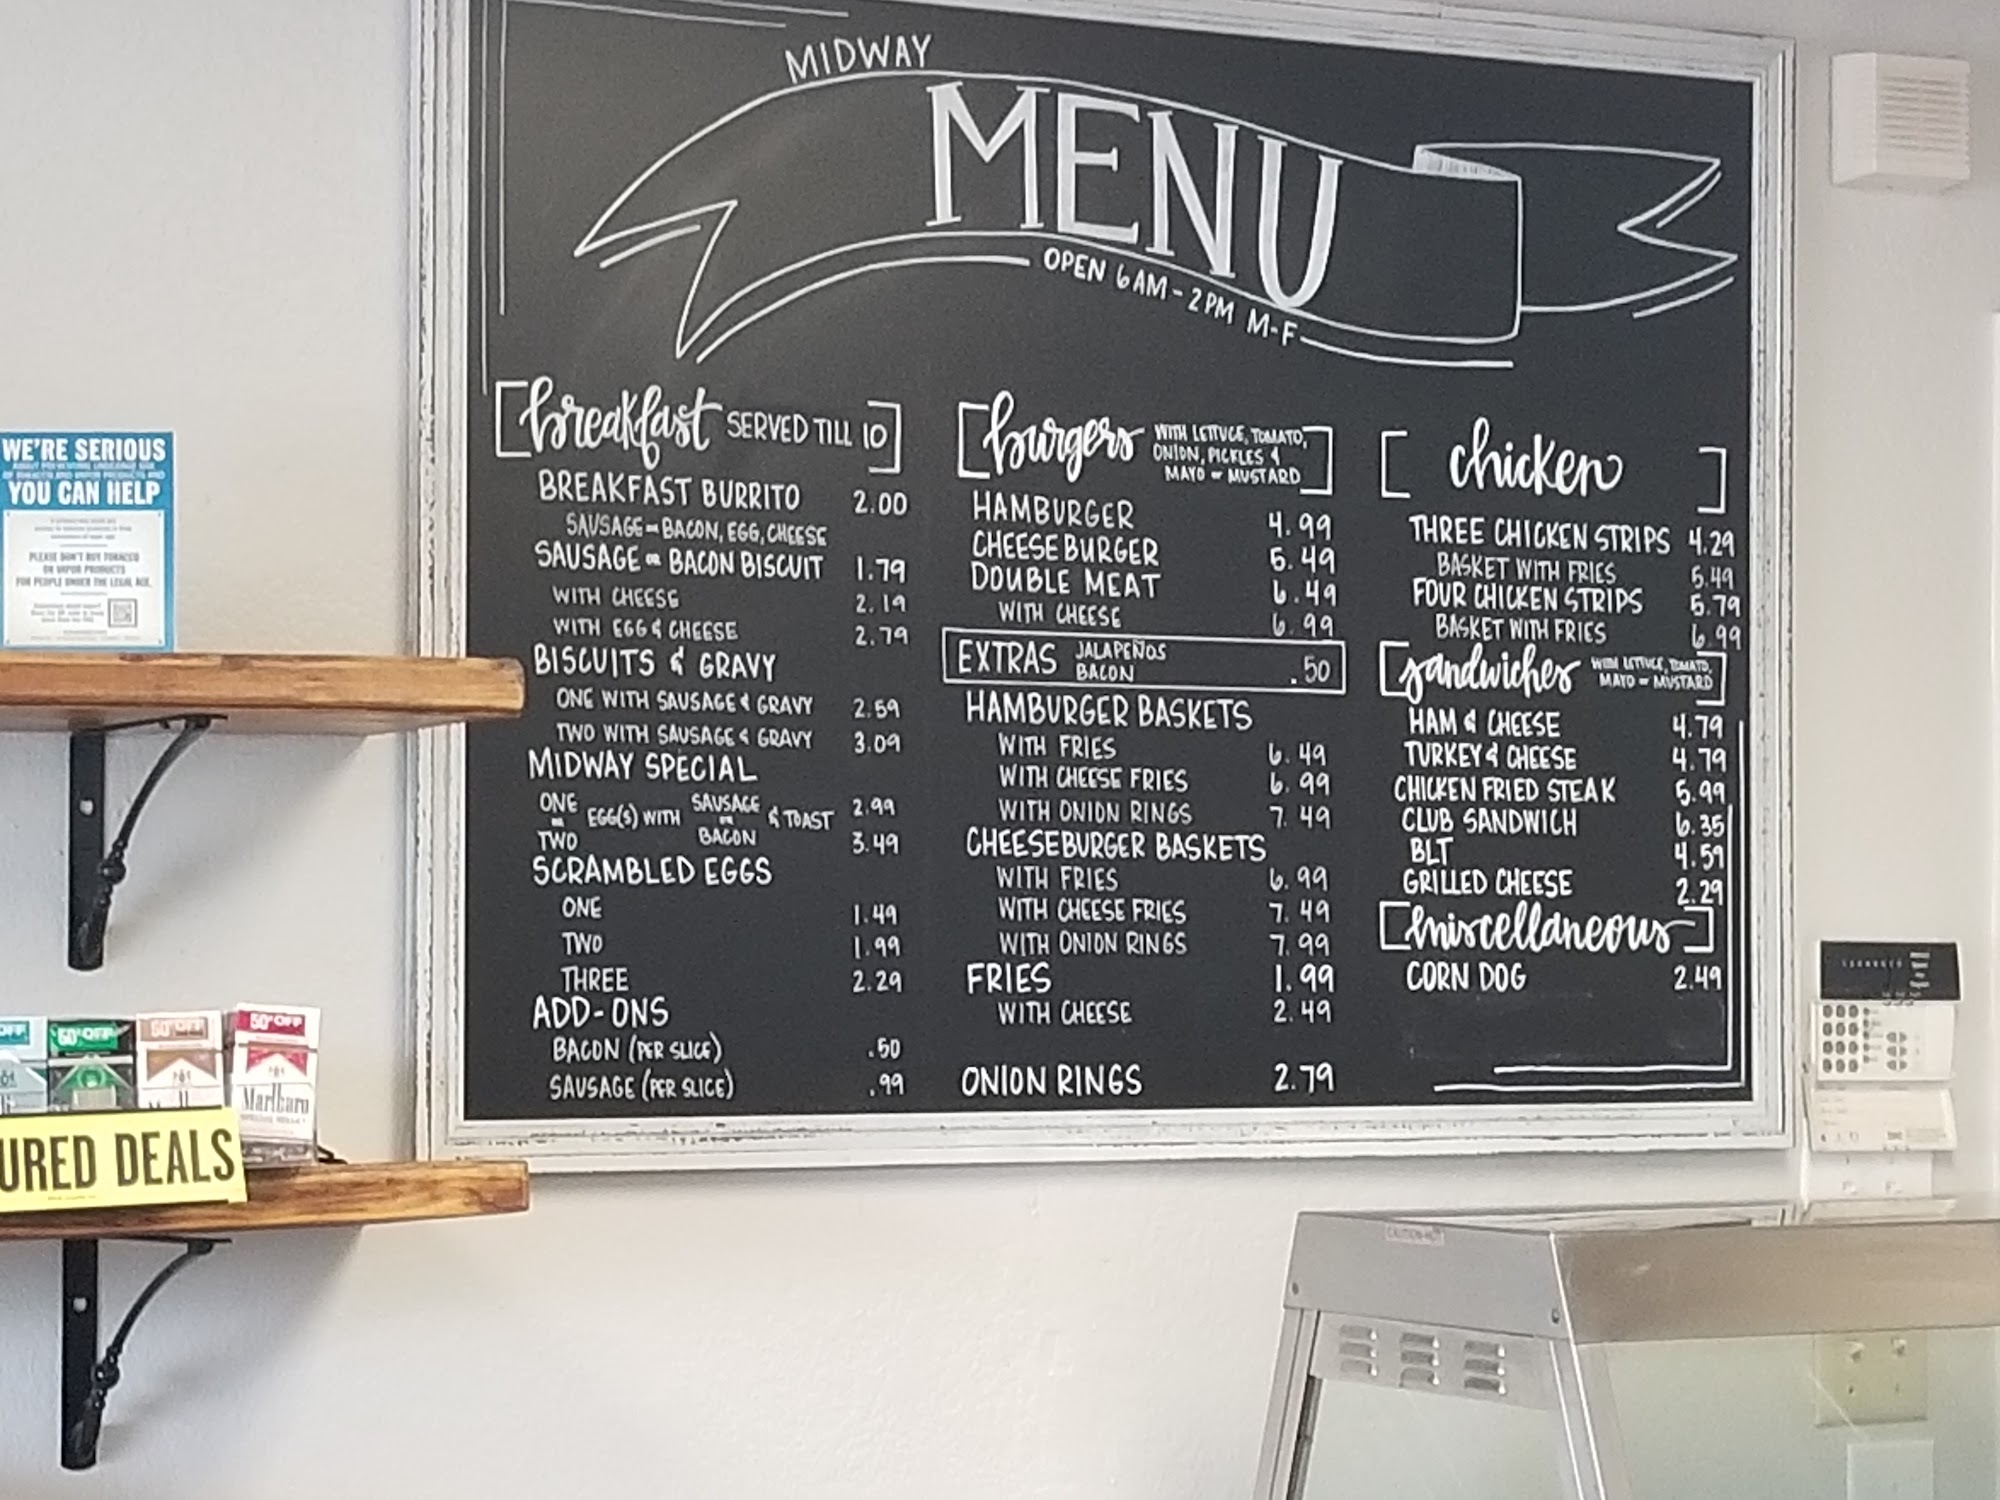 MIDWAY
MENU
OPEN 6AM-2PM M-F
breakfast SERVED TILL 10
BREAKFAST BURRITO 2.00
SAUSAGE or BACON, EGG, CHEESE
SAUSAGE or BACON BISCUIT 1.79
WITH CHEESE 2.19
WITH EGG & CHEESE 2.79
BISCUITS & GRAVY
ONE WITH SAUSAGE & GRAVY 2.59
TWO WITH SAUSAGE & GRAVY 3.09
MIDWAY SPECIAL
ONE or TWO EGG(S) WITH SAUSAGE or BACON & TOAST 2.99
3.49
SCRAMBLED EGGS
ONE 1.49
TWO 1.99
THREE 2.29
ADD-ONS
BACON (PER SLICE) .50
SAUSAGE (PER SLICE) .99
burgers WITH LETTUCE, TOMATO,
ONION, PICKLES &
MAYO or MUSTARD
HAMBURGER 4.99
CHEESEBURGER 5.49
DOUBLE MEAT 6.49
WITH CHEESE 6.99
EXTRAS JALAPEÑOS
BACON .50
HAMBURGER BASKETS
WITH FRIES 6.49
WITH CHEESE FRIES 6.99
WITH ONION RINGS 7.49
CHEESEBURGER BASKETS
WITH FRIES 6.99
WITH CHEESE FRIES 7.49
WITH ONION RINGS 7.99
FRIES 1.99
WITH CHEESE 2.49
ONION RINGS 2.79
chicken
THREE CHICKEN STRIPS 4.29
BASKET WITH FRIES 5.49
FOUR CHICKEN STRIPS 5.79
BASKET WITH FRIES 6.99
sandwiches WITH LETTUCE, TOMATO,
MAYO or MUSTARD
HAM & CHEESE 4.79
TURKEY & CHEESE 4.79
CHICKEN FRIED STEAK 5.99
CLUB SANDWICH 6.35
BLT 4.59
GRILLED CHEESE 2.29
miscellaneous
CORN DOG 2.49
WE'RE SERIOUS
ABOUT PREVENTING UNDERAGE USE
OF TOBACCO AND VAPOR PRODUCTS AND
YOU CAN HELP
PLEASE DON'T BUY TOBACCO
OR VAPOR PRODUCTS
FOR PEOPLE UNDER THE LEGAL AGE.
OFF
50¢ OFF
50¢ OFF
50¢ OFF
Marlboro
URED DEALS
CAUTION-HOT